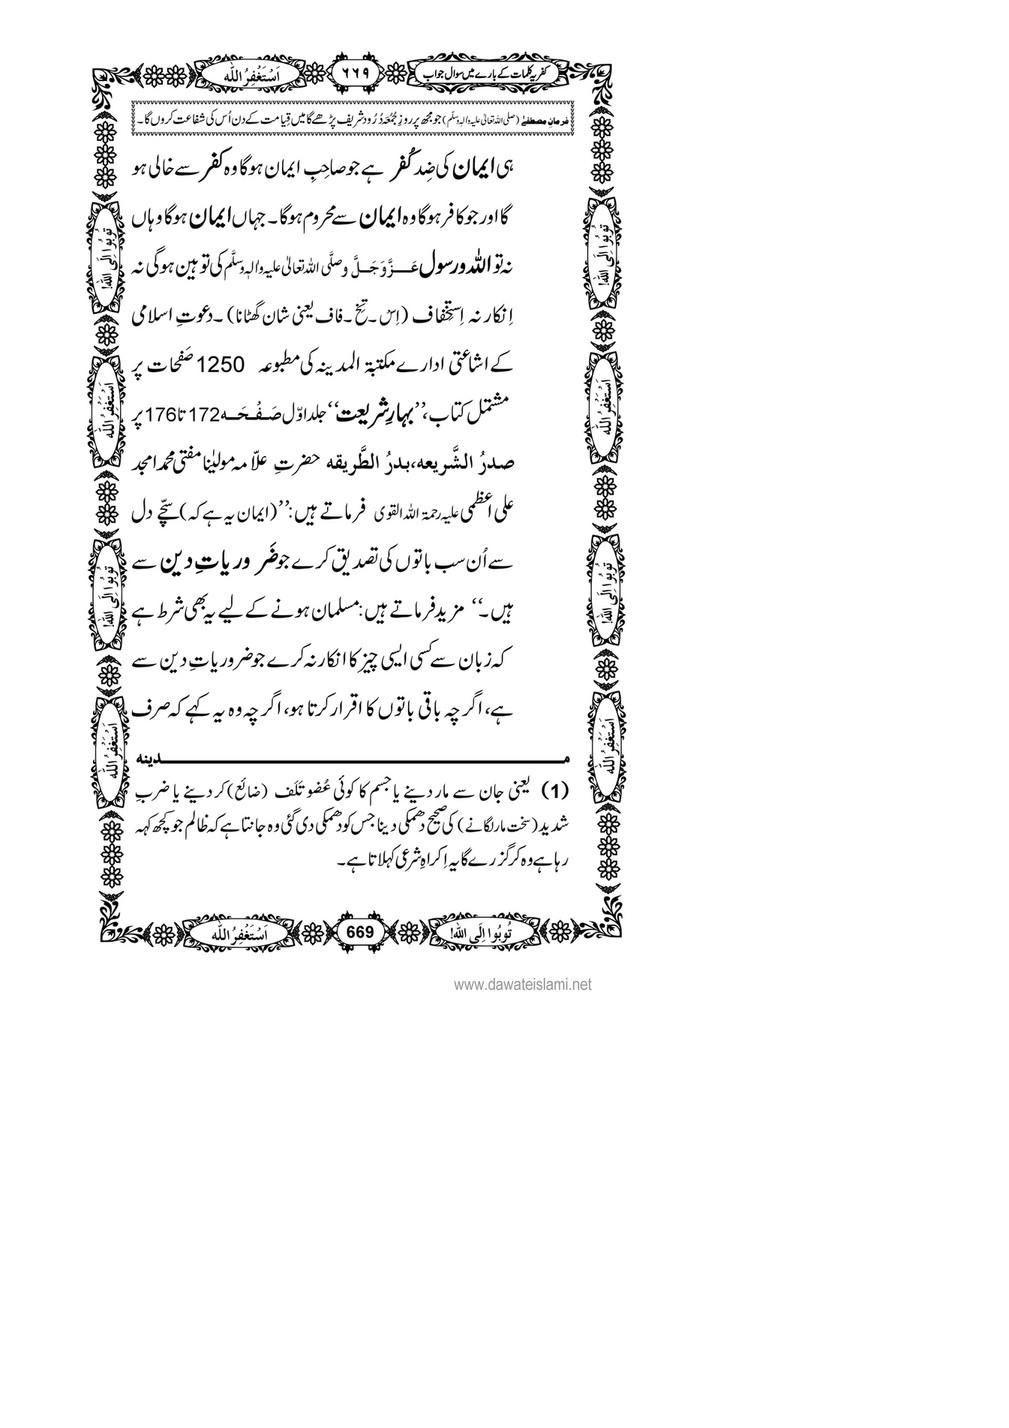 کفریہ کلمات کے بارے میں سوال جواب ٦٦٩ اَسْتَغْفِرُ اللّٰه
فرمانِ مصطفٰے (صلی اللہ تعالیٰ علیہ والہٖ وسلّم) جو مجھ پر روزِ جُمُعَہ دُرُود شریف پڑھے گا میں قِیامت کے دن اُس کی شفاعت کروں گا۔
ہی ایمان کی ضِد کُفر ہے جو صاحِبِ ایمان ہوگا وہ کفر سے خالی ہو
گا اور جو کافر ہوگا وہ ایمان سے محروم ہوگا۔ جہاں ایمان ہوگا وہاں
نہ تو اللہ و رسول عَزَّوَجَلَّ وصلَّی اللہ تعالیٰ علیہ والہٖ وسلَّم کی توہین ہوگی نہ
اِنکار نہ اِستِخفاف (اِس۔تِخ۔فاف یعنی شان گھٹانا)۔ دعوتِ اسلامی
کے اشاعتی ادارے مکتبۃ المدینہ کی مطبوعہ 1250 صَفْحات پر
مشتمل کتاب، ’’بہارِ شریعت‘‘ جلد اوّل صَفْحَہ 172 تا 176 پر
صدرُ الشَّریعہ، بدرُ الطَّریقہ حضرتِ علاّمہ مولیٰنا مفتی محمد امجد
علی اعظمی علیہ رحمۃ اللہ القوی فرماتے ہیں: ’’(ایمان یہ ہے کہ) سچّے دل
سے اُن سب باتوں کی تصدیق کرے جو ضَروریاتِ دین سے
ہیں۔‘‘ مزید فرماتے ہیں: مسلمان ہونے کے لیے یہ بھی شرط ہے
کہ زبان سے کسی ایسی چیز کا انکار نہ کرے جو ضروریاتِ دین سے
ہے، اگرچہ باقی باتوں کا اقرار کرتا ہو، اگرچہ وہ یہ کہے کہ صرف
مدینہ
(1) یعنی جان سے مار دینے یا جسم کا کوئی عُضو تَلَف (ضائع) کر دینے یا ضربِ
شدید (سخت مار لگانے) کی صحیح دھمکی دینا جس کو دھمکی دی گئی وہ جانتا ہے کہ ظالم جو کچھ کہہ
رہا ہے وہ کر گزرے گا یہ اِکراہِ شرعی کہلاتا ہے۔
تُوبُوا اِلَی اللّٰه!
اَسْتَغْفِرُ اللّٰه
تُوبُوا اِلَی اللّٰه!
اَسْتَغْفِرُ اللّٰه
تُوبُوا اِلَی اللّٰه!
اَسْتَغْفِرُ اللّٰه
تُوبُوا اِلَی اللّٰه!
اَسْتَغْفِرُ اللّٰه
تُوبُوا اِلَی اللّٰه! 669 اَسْتَغْفِرُ اللّٰه
www.dawateislami.net